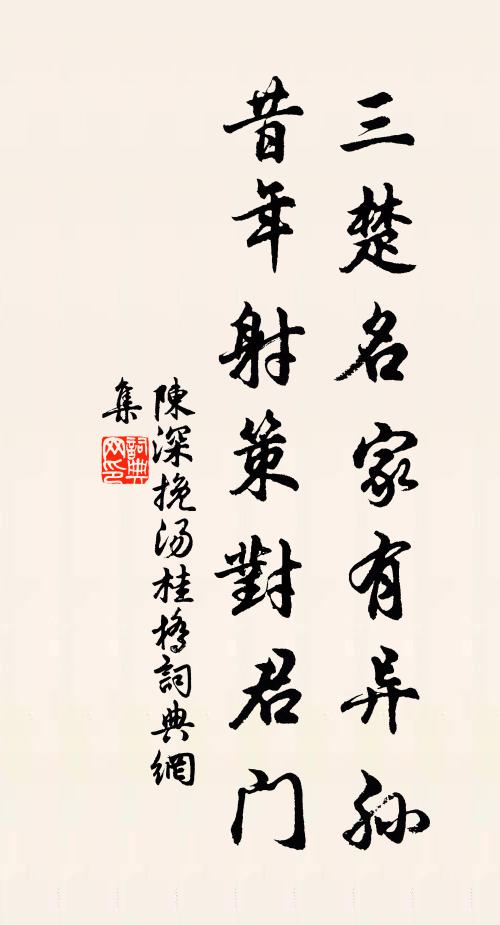 三楚名家有异孙
昔年射策對君门
陳深挽汤桂橋詞典網
集
詞典网印